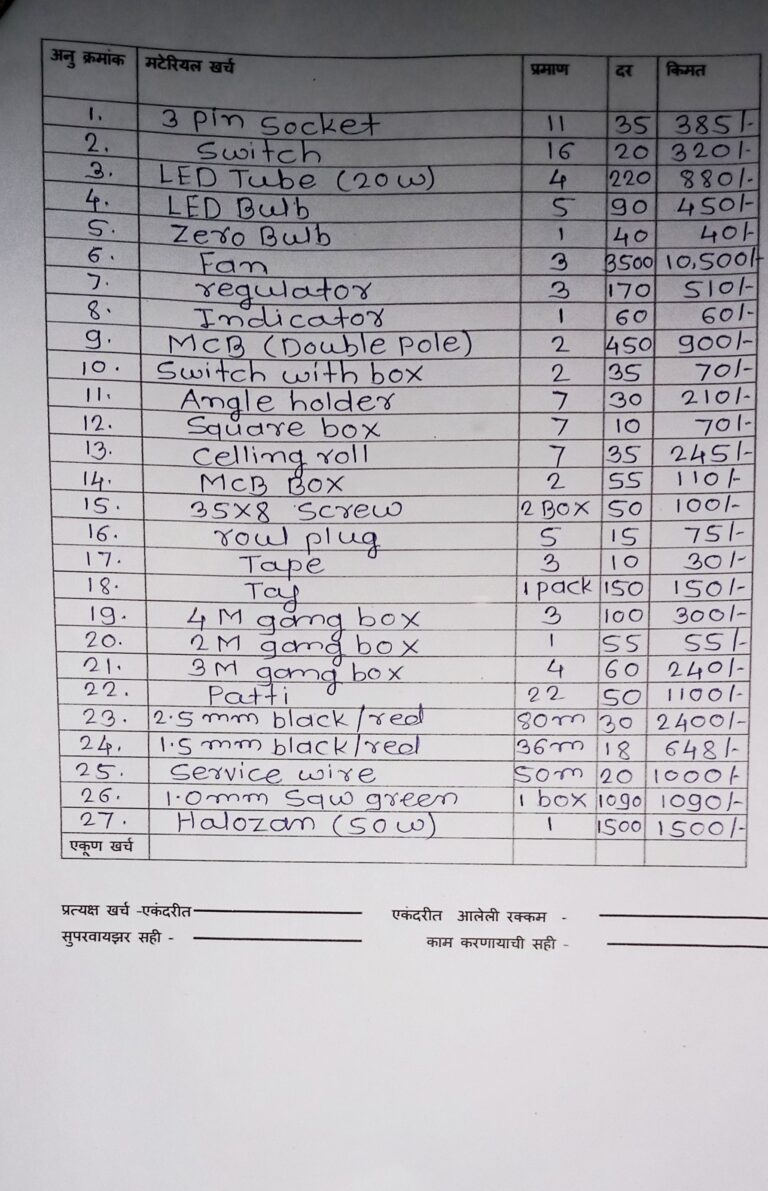 अनु क्रमांक मटेरियल खर्च प्रमाण दर किमत
1. 3 pin socket 11 35 385/-
2. Switch 16 20 320/-
3. LED Tube (20W) 4 220 880/-
4. LED Bulb 5 90 450/-
5. Zero Bulb 1 40 40/-
6. Fan 3 3500 10,500/-
7. regulator 3 170 510/-
8. Indicator 1 60 60/-
9. MCB (Double Pole) 2 450 900/-
10. Switch with box 2 35 70/-
11. Angle holder 7 30 210/-
12. Square box 7 10 70/-
13. Celling roll 7 35 245/-
14. MCB BOX 2 55 110/-
15. 35X8 Screw 2 BOX 50 100/-
16. rowl plug 5 15 75/-
17. Tape 3 10 30/-
18. Taj 1 pack 150 150/-
19. 4 M gang box 3 100 300/-
20. 2 M gang box 1 55 55/-
21. 3 M gang box 4 60 240/-
22. Patti 22 50 1100/-
23. 2.5 mm black/red 80m 30 2400/-
24. 1.5 mm black/red 36m 18 648/-
25. Service wire 50m 20 1000/-
26. 1.0mm Sqw green 1 box 1090 1090/-
27. Halozan (50W) 1 1500 1500/-
एकूण खर्च
प्रत्यक्ष खर्च -एकंदरीत एकंदरीत आलेली रक्कम -
सुपरवायझर सही - काम करणायाची सही -